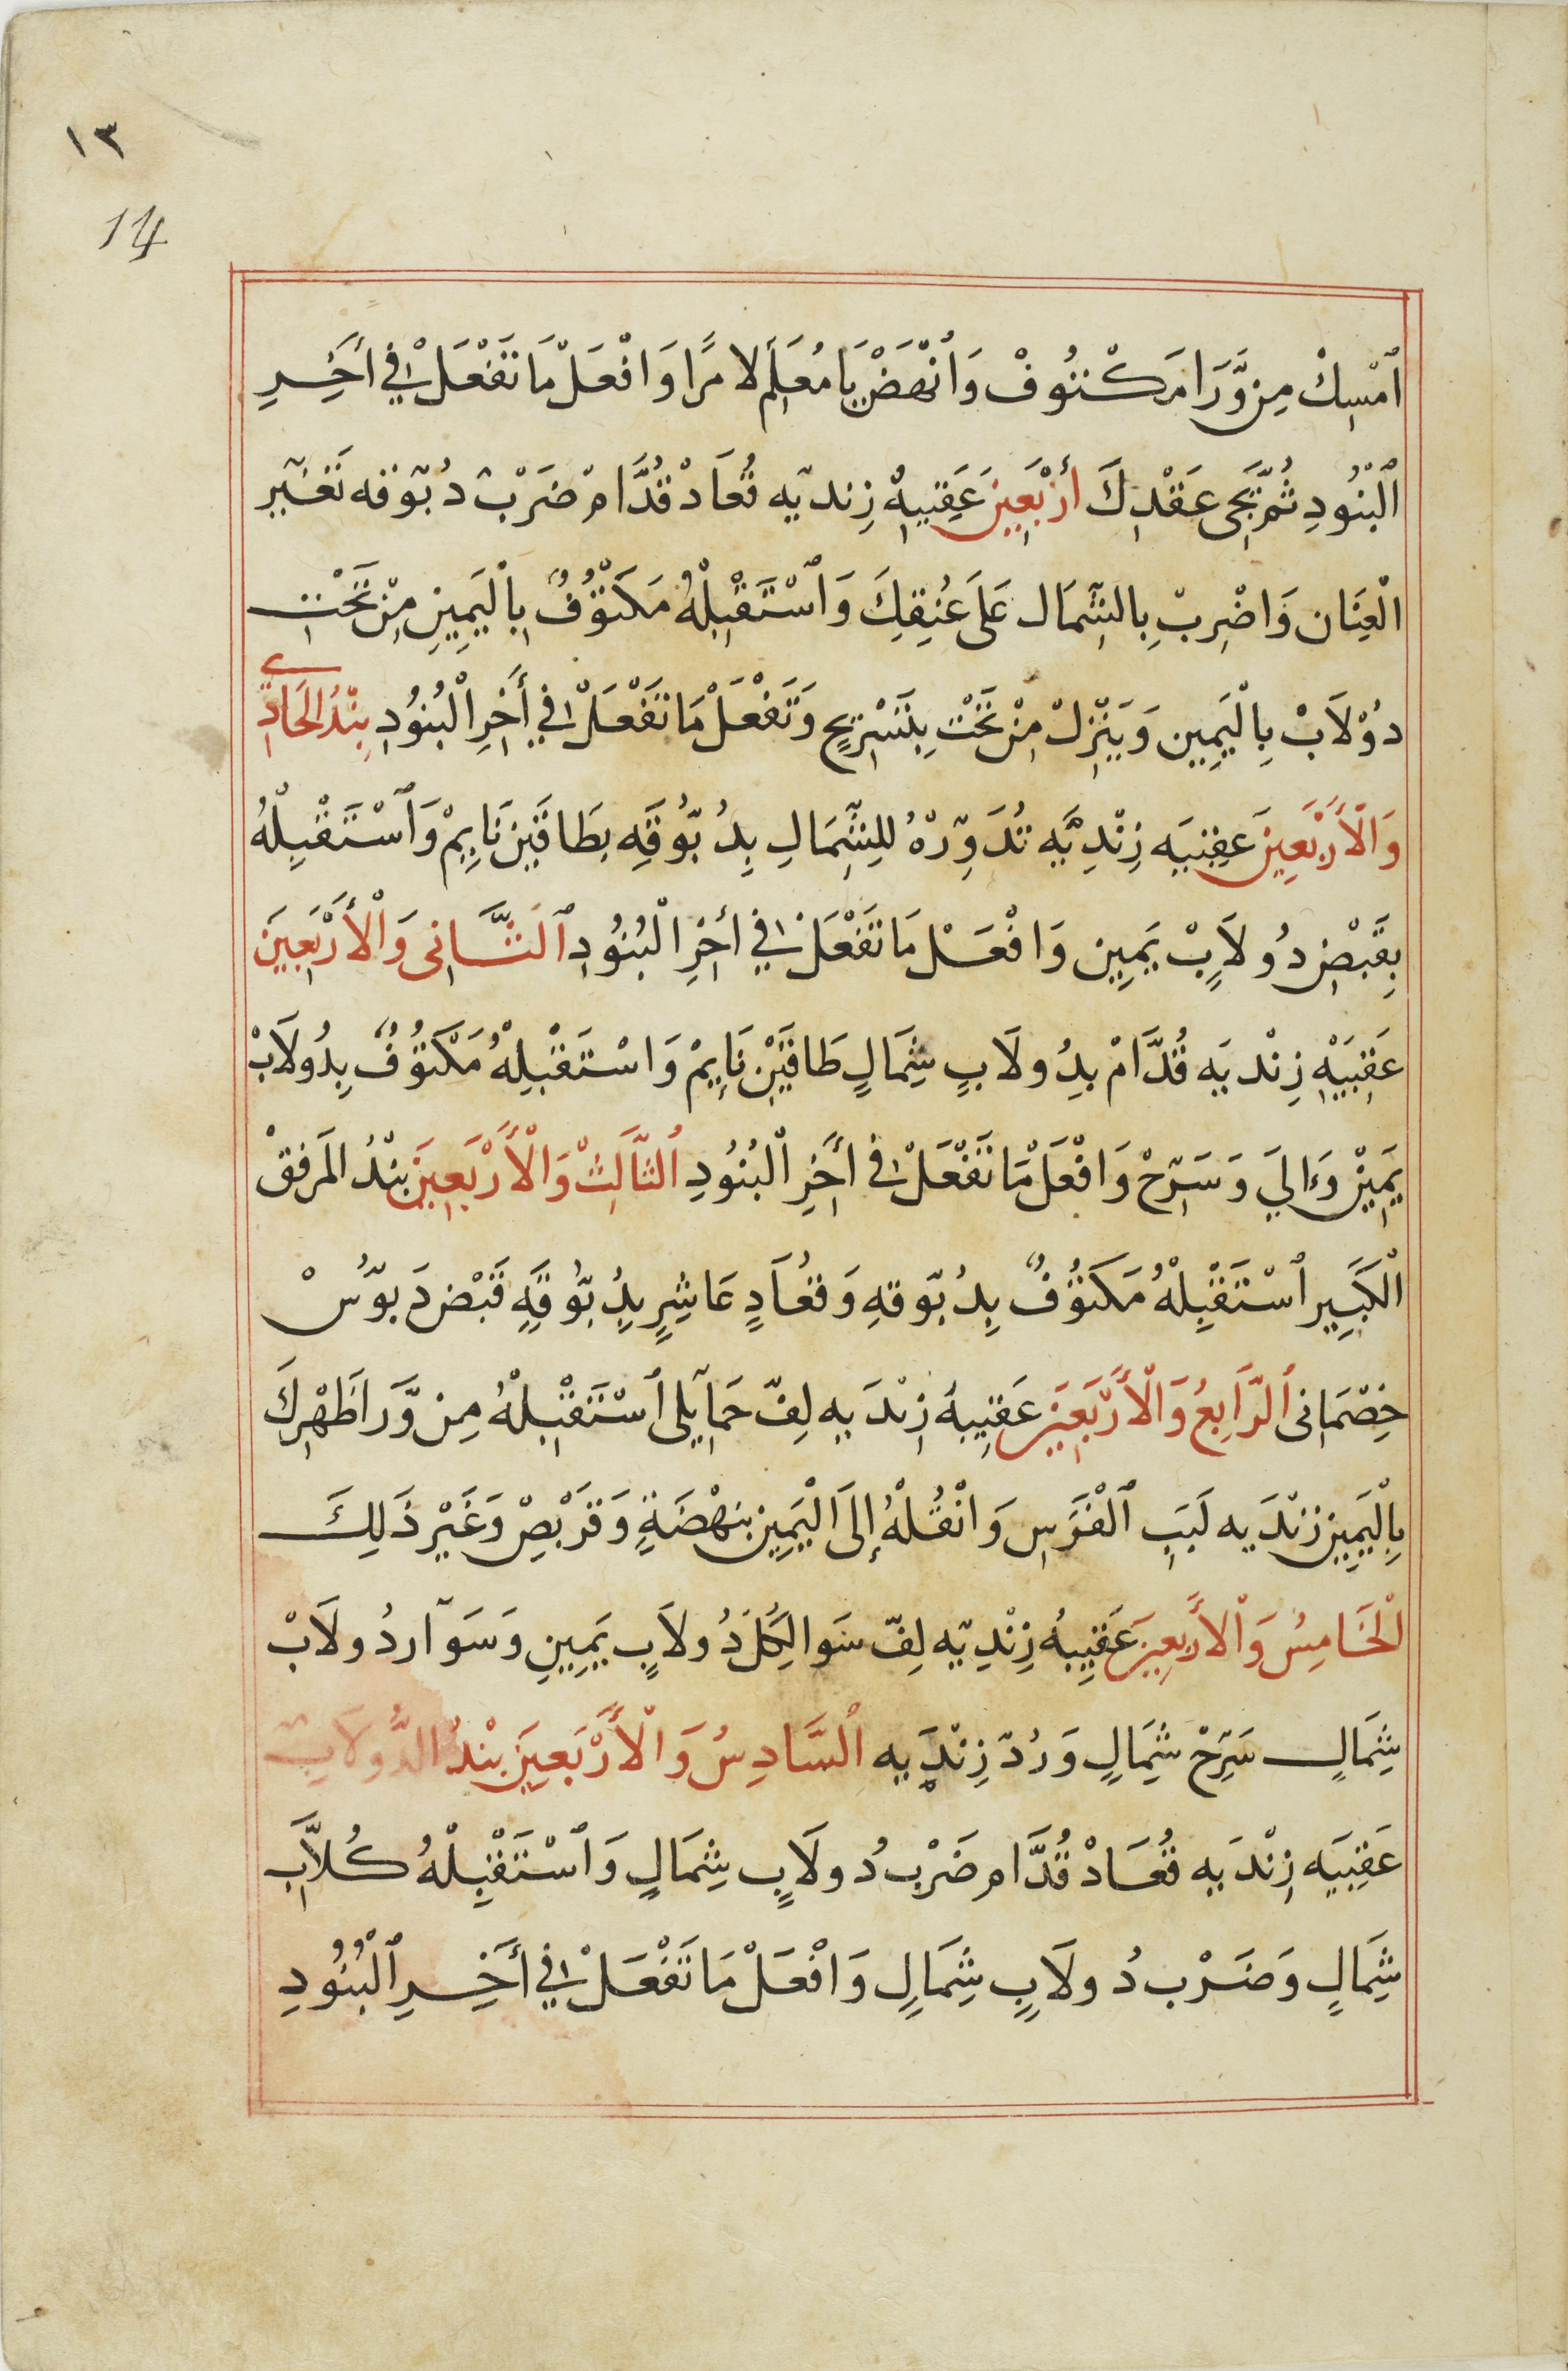 ١٣
14
ٱمْسِكْ مِن وَّرَا مَرَكْتُوفْ وَٱنْهَضْ يَا مُعَلِّم لَامَّرا وَافْعَلْ مَا تَفْعَلْ فِي أَخِرِ
ٱلْبُنُودِ ثُمَّ يَجِي عَقْدِكَ أَرْبَعِينَ عَقِبِيهْ زِنديّه قُعَادْ قُدَّامْ ضَرْبْ دُبّوقه تَغْيِير
الْعِنَان وَاضْرِبْ بِالشِّمَال عَلَى عُنِقِكَ وَٱسْتَقْبِلْهُ مَكْتُوْفٌ بِالْيَمِينِ مِنْ تَحْتِ
دُوْلَابْ بِالْيَمِين وَيَنْزِلْ مِنْ تَحْتْ بِتَسْرِيحٍ وَتَفْعَلْ مَا تَفْعَلْ فِي أَخِرِ الْبُنُودِ بَنْدُ الْحَادِي
وَالْأَرْبَعِينَ عَقِبِيَه زِنْدِيَّه تُدَوِّرْهُ لِلشِّمَالِ بِدُبُّوقَه بِطَاقَيْنِ نَايِمْ وَٱسْتَقْبِلْهُ
بِقَبْضِ دُولَابْ يَمِين وَافْعَلْ مَا تَفْعَلْ فِي أَخِرِ الْبُنُودِ ٱلثَّانِى وَالْأَرْبَعِينَ
عَقِبَيْهِ زِنْديَه قُدَّامْ بِدُولَابٍ شِمَالٍ طَاقَيْنْ نَايِمْ وَاسْتَقْبِلْهُ مَكْتُوُفٌ بِدُولَابْ
يَمِينْ وَالِيَ وَسَرّحْ وَافْعَلْ مَا تَفْعَلْ فِي أَخِرِ الْبُنُودِ ٱلثَّالِثْ وَالْأَرْبَعِينَ بَنْدُ المَرفِقْ
الْكَبِير ٱسْتَقْبِلْهُ مَكْتُوُفٌ بِدُبّوقهِ وَقعُادٍ عَاشِرٍ بِدُبُّوقَه قَبْض دَبّوُسْ
خِصْمَانى ٱلرَّابِعُ وَالْأَرْبَعِينَ عَقِبِيهُ زِنْدَيه لِفّ حَمَايِلى ٱسْتَقْبِلْهُ مِن وَّرَا ظَهْرِكَ
بِالْيَمِين زنْدَيه لَبَبِ ٱلْفَرَسِ وَانْقُلْهُ إِلَى الْيَمِين بِنهْضَةٍ وَقَرْبِصْ وَغَيْر ذَلِكَ
الْخَامِسُ وَالْأَرْبِعِينَ عَقِيبِهُ زِنْدِيّه لِفّ سَوَا لِكُل دُولَابٍ يَمِينٍ وَسَوَآر دُولَابْ
شِمَالٍ سَرّحْ شِمَالٍ وَرُدّ زِنْدَيه ٱلسَّادِسُ وَالْأَرْبَعِينَ بَنْدُ الدُّولَابِ
عَقِبِيَه زِنْدَيه قُعَادْ قُدَّام ضَرْب دُولَابٍ شِمَالٍ وَٱسْتَقْبِلْهُ كُلَّابِ
شِمَالٍ وَضَرْب دُولَابٍ شِمَالٍ وَافْعَلْ مَا تَفْعَلْ فِي أَخِرِ ٱلْبُنُودِ